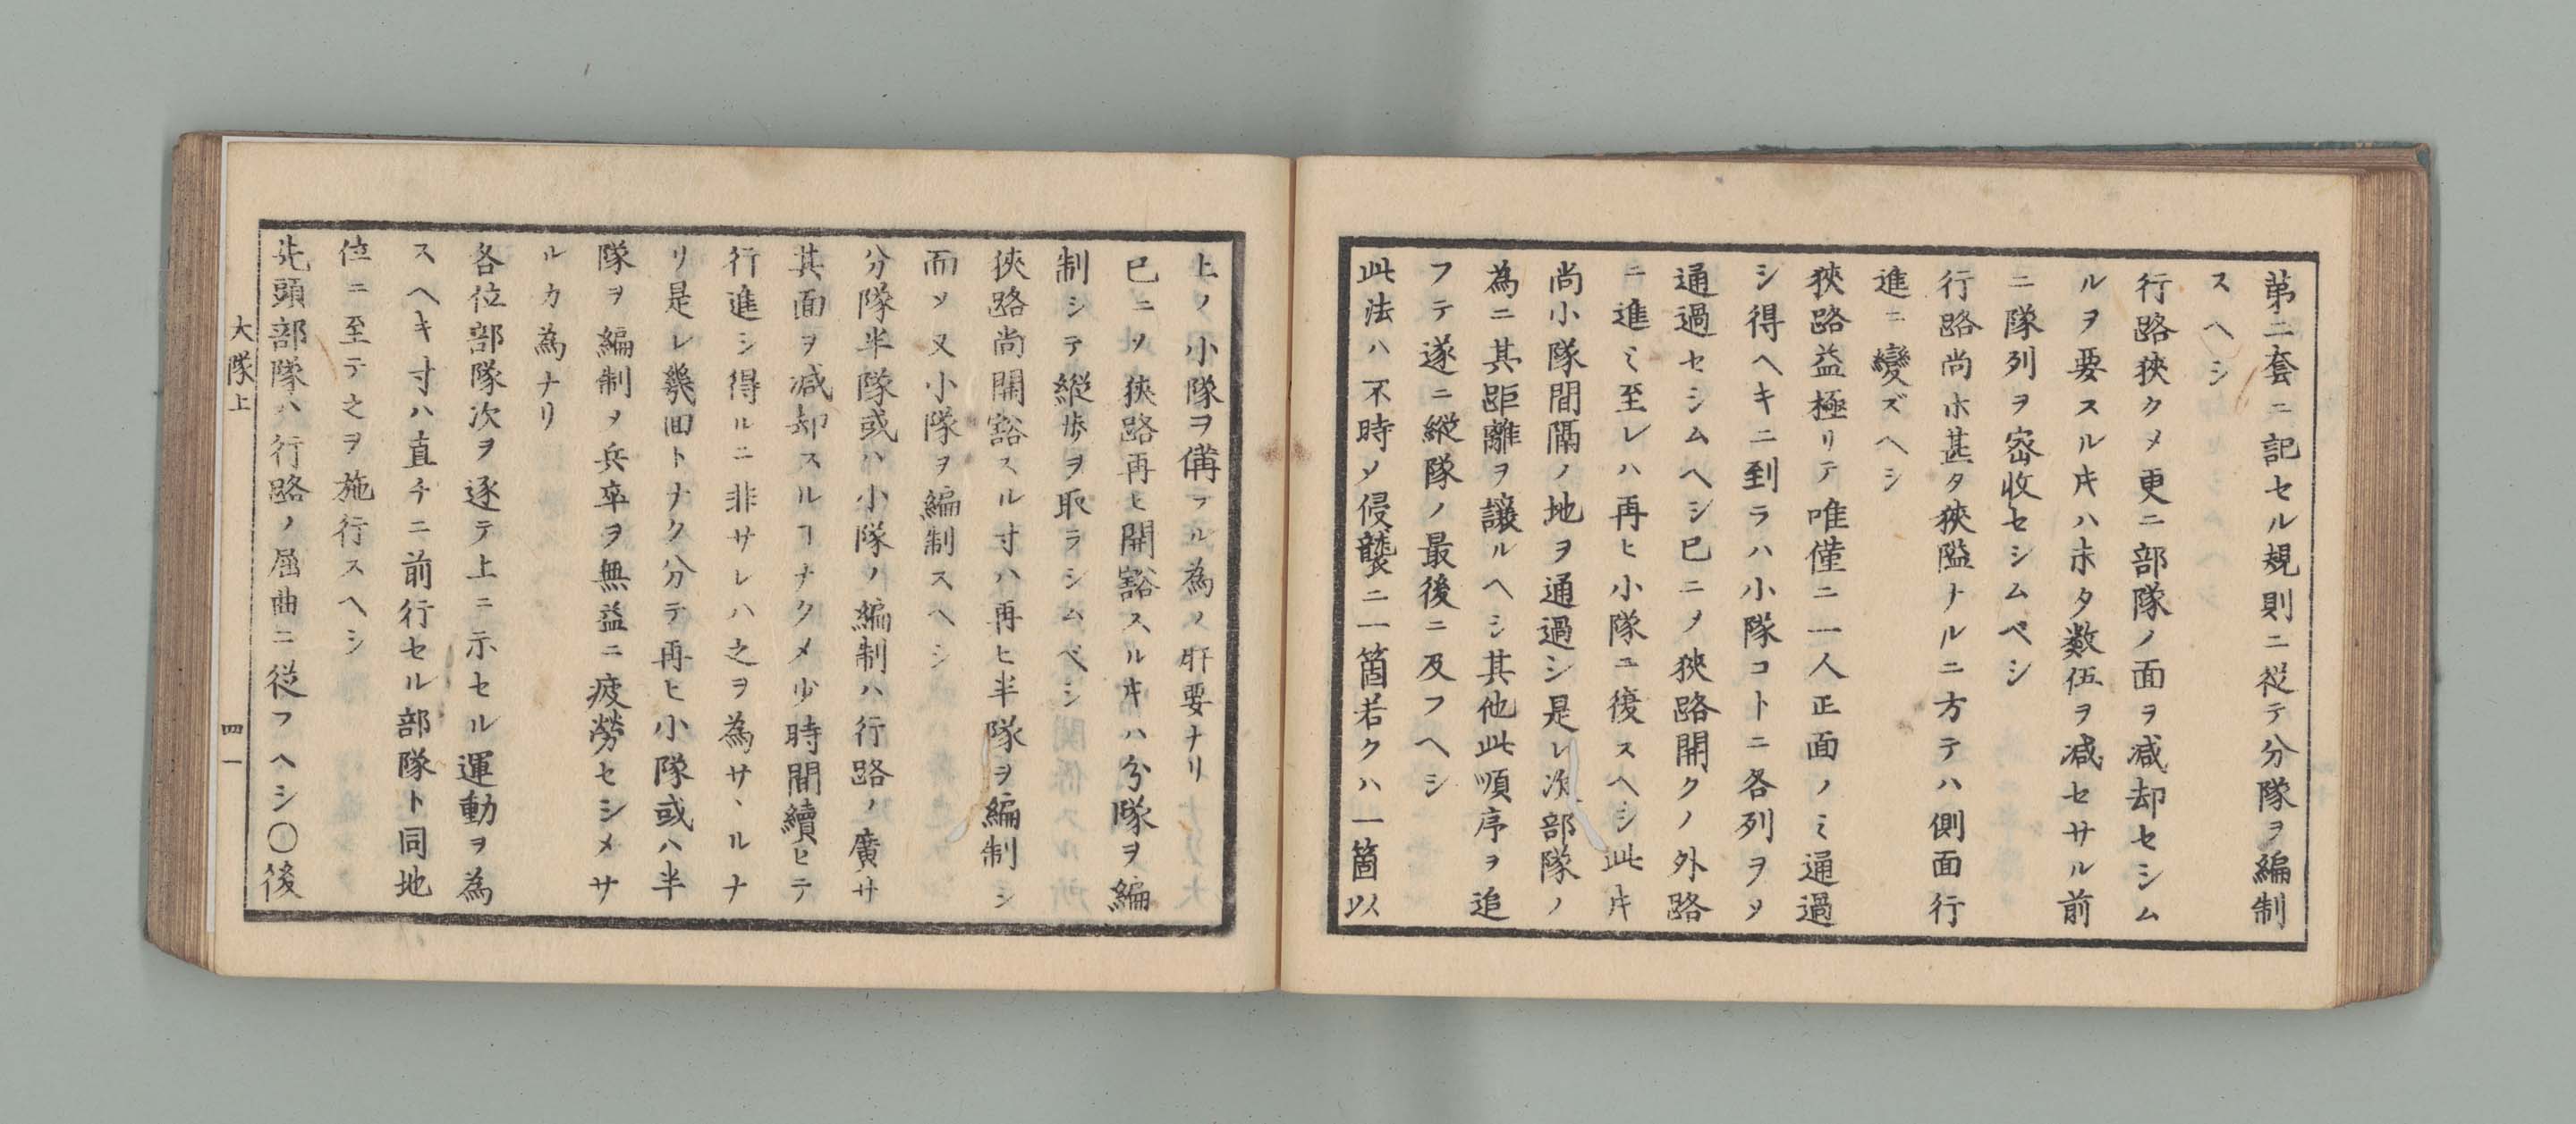 第二套ニ記セル規則ニ從テ分隊ヲ編制
スヘシ
行路狹クメ更ニ部隊ノ面ヲ减却セシム
ルヲ要スルキハ未タ数伍ヲ减セサル前
ニ隊列ヲ密收セシムペシ
行路尚ホ甚タ狹隘ナルニ方テハ側面行
進ニ變ズヘシ
狹路益極リテ唯僅ニ一人正面ノミ通過
シ得ヘキニ到ラハ小隊コトニ各列ヲメ
通過セシムヘシ已ニメ狹路開クノ外路
ニ進ミ至レハ再ヒ小隊ニ復スヘシ此キ
尚小隊間隔ノ地ヲ通過シ是レ次部隊ノ
為ニ其距離ヲ讓ルヘシ其他此順序ヲ追
フテ遂ニ縦隊ノ最後ニ及フヘシ
此法ハ不時ノ侵襲ニ一箇若クハ一箇以
上ノ小隊ヲ備フル為メ肝要ナリ
已ニメ狹路再ヒ開豁スルキハ分隊ヲ編
制シテ縦歩ヲ取ラシムベシ
狹路尚開豁スル寸ハ再ヒ半隊ヲ編制シ
而メ又小隊ヲ編制スヘシ
分隊半隊或ハ小隊ノ編制ハ行路ノ廣サ
其面ヲ减却スルヿナクメ少時間續ヒテ
行進シ得ルニ非サレハ之ヲ為サヽルナ
リ是レ幾回トナク分テ再ヒ小隊或ハ半
隊ヲ編制メ兵卒ヲ無益ニ疲勞セシメサ
ルカ為ナリ
各位部隊次ヲ逐テ上ニ示セル運動ヲ為
スヘキ寸ハ直チニ前行セル部隊ト同地
位ニ至テ之ヲ施行スヘシ
先頭部隊ハ行路ノ屈曲ニ從フヘシ〇後
大隊上
四一